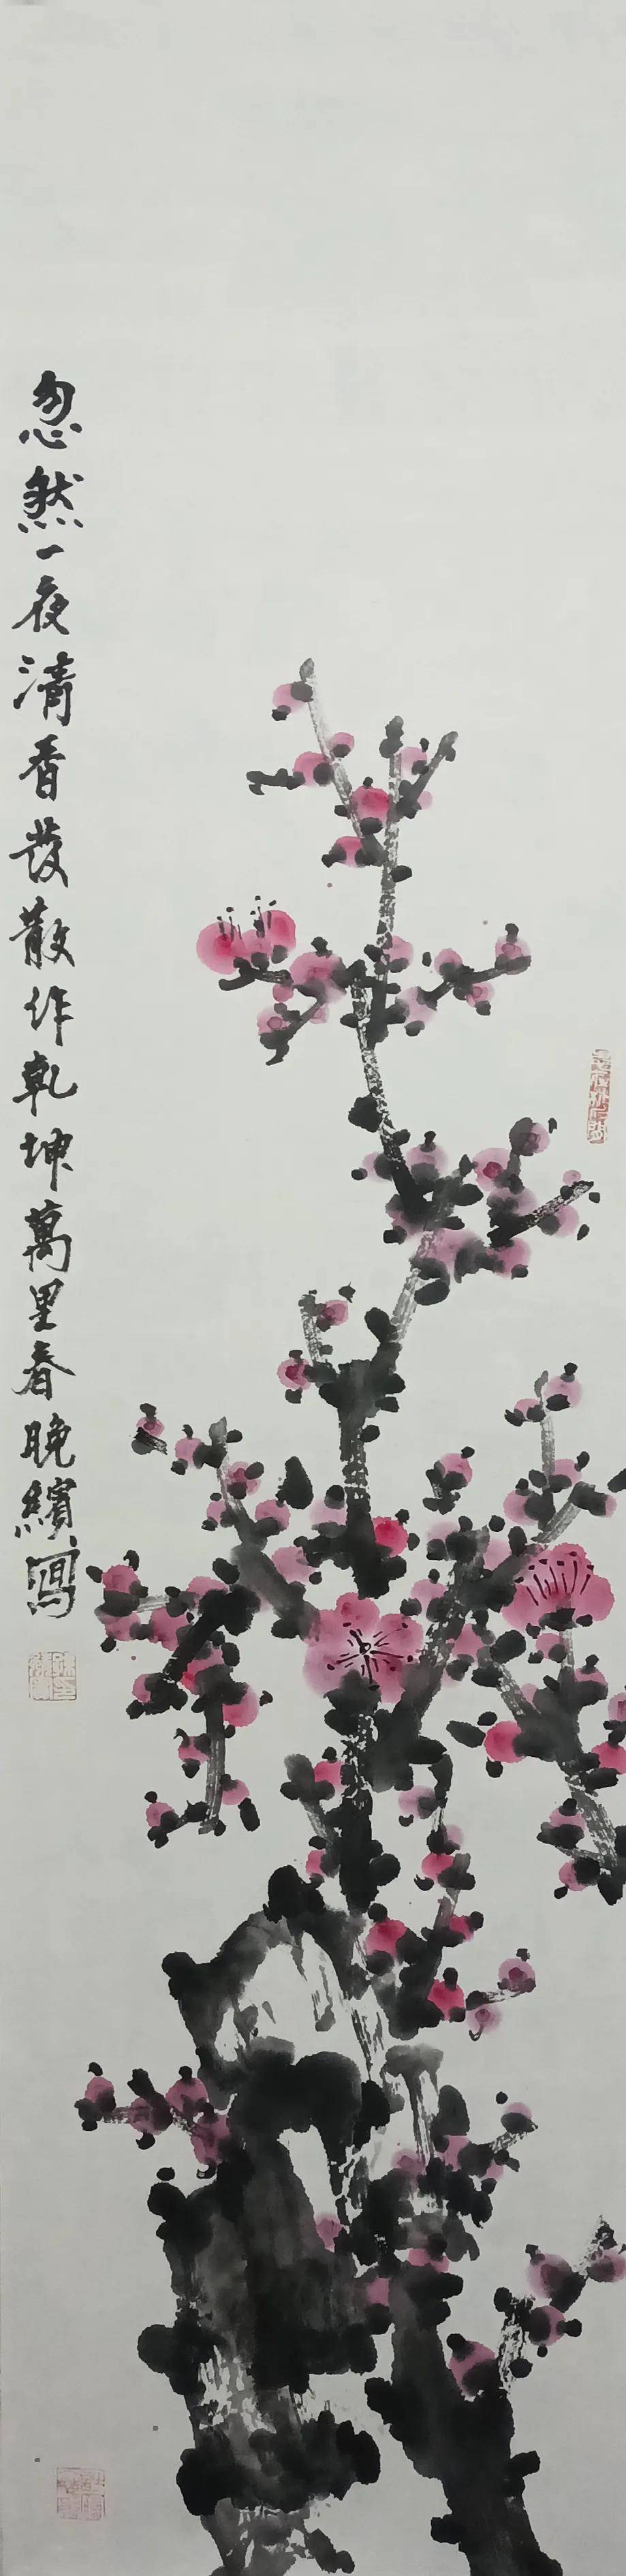 忽然一夜清香发散作乾坤萬里春晚繽寫